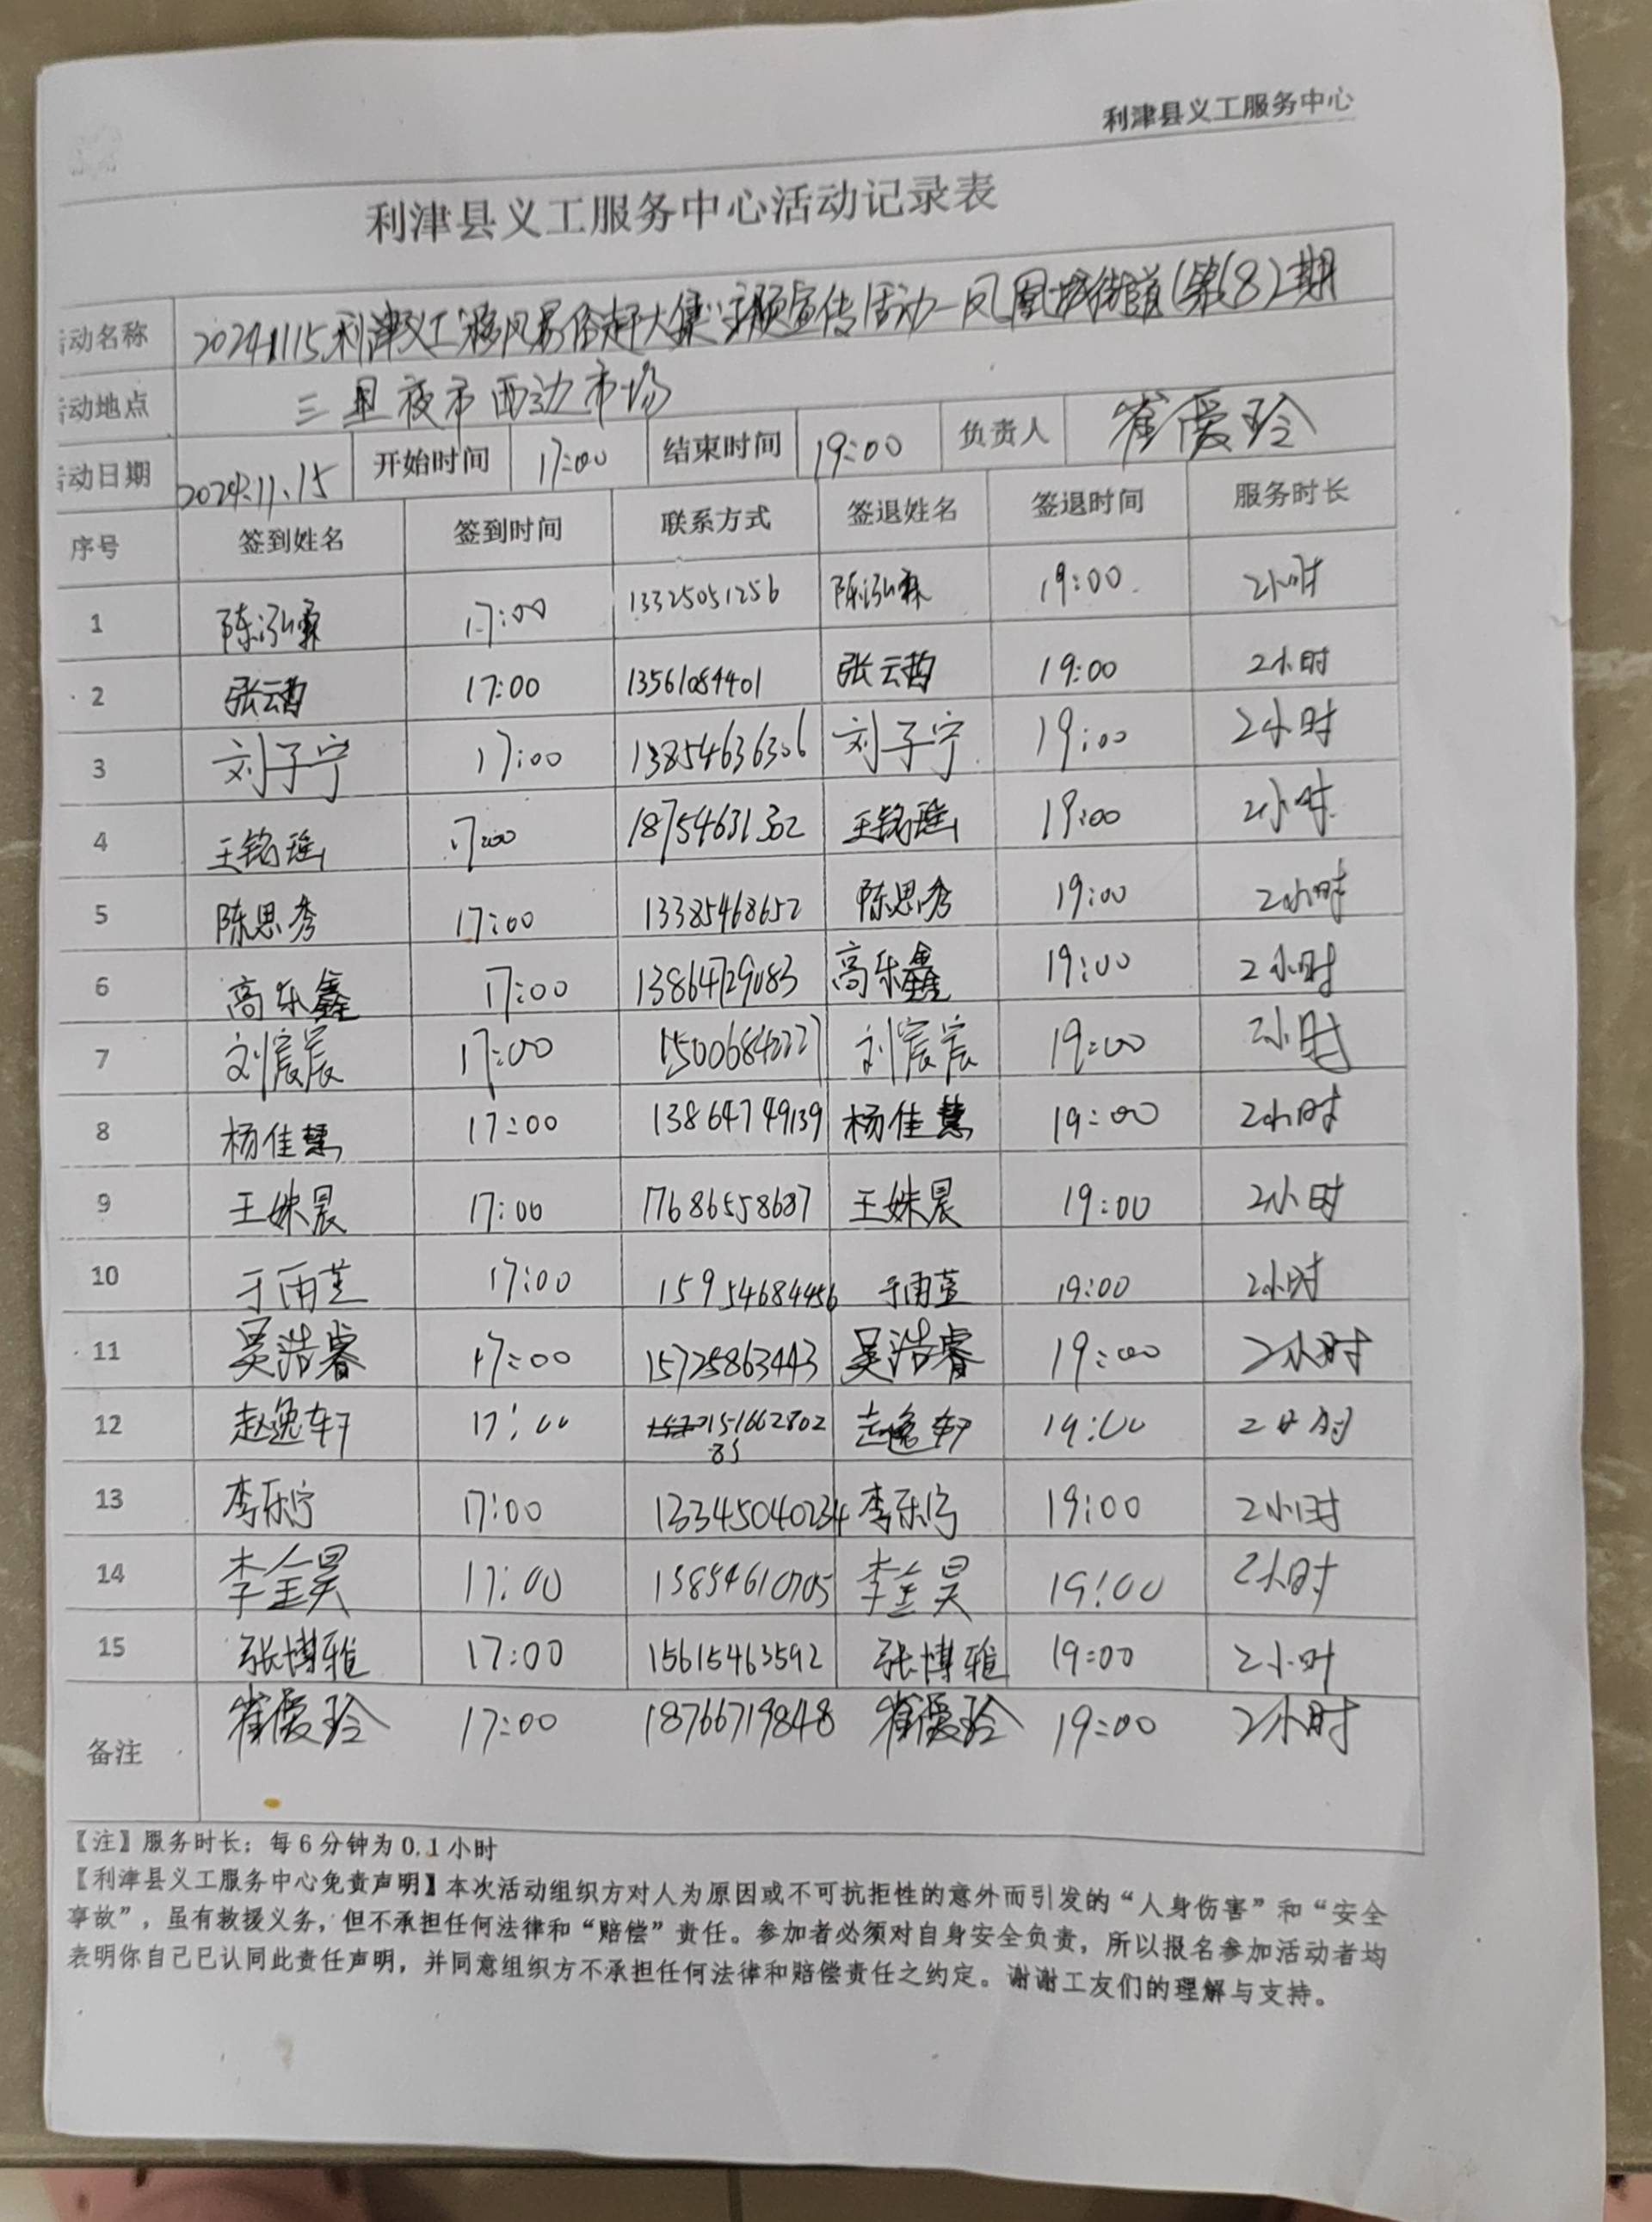 利津县义工服务中心
利津县义工服务中心活动记录表
活动名称 2024.11.15利津义工"移风易俗赶大集"主题宣传活动—凤凰城街道(第(8)期
活动地点 三里夜市西边市场
活动日期 2024.11.15 开始时间 17:00 结束时间 19:00 负责人 崔爱玲
序号 签到姓名 签到时间 联系方式 签退姓名 签退时间 服务时长
1 陈泓霖 17:00 13325051256 陈泓霖 19:00 2小时
2 张云茜 17:00 13561084401 张云茜 19:00 2小时
3 刘子宁 17:00 13854636306 刘子宁 19:00 2小时
4 王铭瑶 17:00 18754631302 王铭瑶 19:00 2小时
5 陈思秀 17:00 13385468652 陈思秀 19:00 2小时
6 高乐鑫 17:00 13864729083 高乐鑫 19:00 2小时
7 刘宸宸 17:00 15006840227 刘宸宸 19:00 2小时
8 杨佳慧 17:00 13864749139 杨佳慧 19:00 2小时
9 王姝晨 17:00 17686558687 王姝晨 19:00 2小时
10 于雨萱 17:00 15954684456 于雨萱 19:00 2小时
11 吴浩睿 17:00 15725863443 吴浩睿 19:00 2小时
12 赵逸轩 17:00 151662802 赵逸轩 19:00 2小时
85
13 李乐宁 17:00 13345040234 李乐宁 19:00 2小时
14 李金昊 17:00 15854610705 李金昊 19:00 2小时
15 张博雅 17:00 15615463592 张博雅 19:00 2小时
备注 崔爱玲 17:00 18766719848 崔爱玲 19:00 2小时
【注】服务时长：每6分钟为0.1小时
【利津县义工服务中心免责声明】本次活动组织方对人为原因或不可抗拒性的意外而引发的“人身伤害”和“安全
事故”，虽有救援义务，但不承担任何法律和“赔偿”责任。参加者必须对自身安全负责，所以报名参加活动者均
表明你自己已认同此责任声明，并同意组织方不承担任何法律和赔偿责任之约定。谢谢工友们的理解与支持。